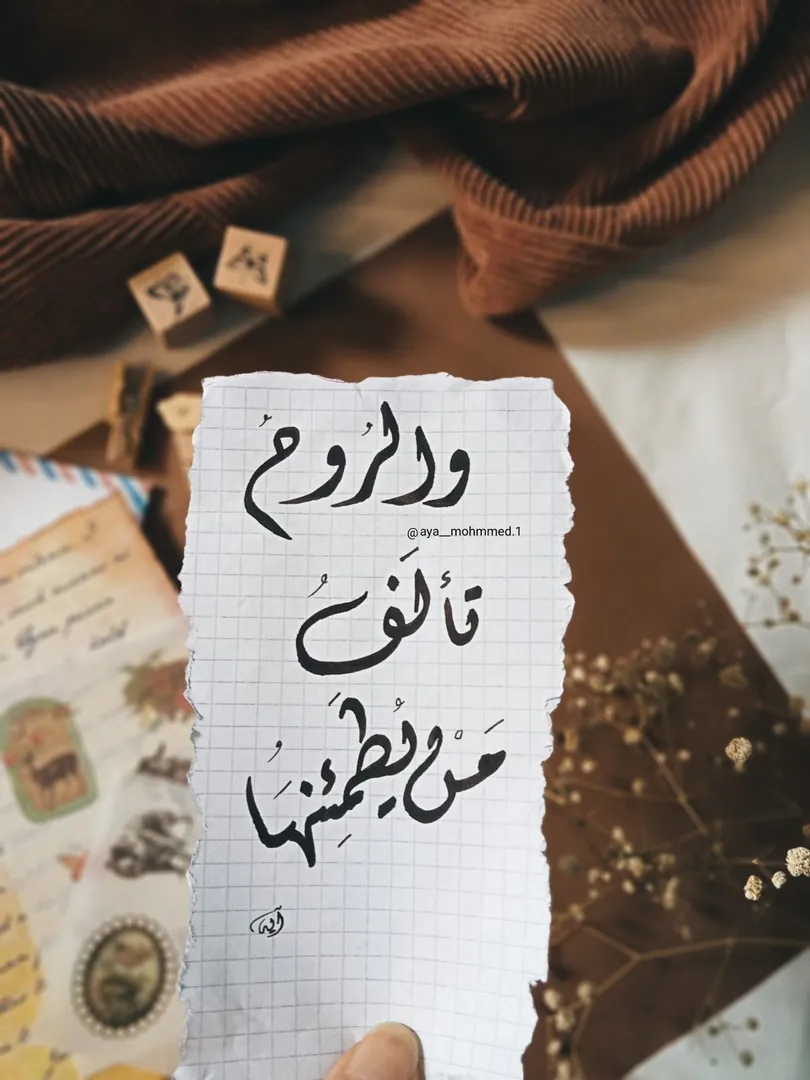 والرُوحُ
@aya__mohmmed.1
تألَفُ
مَنْ يُطَمئِنهَا
آية